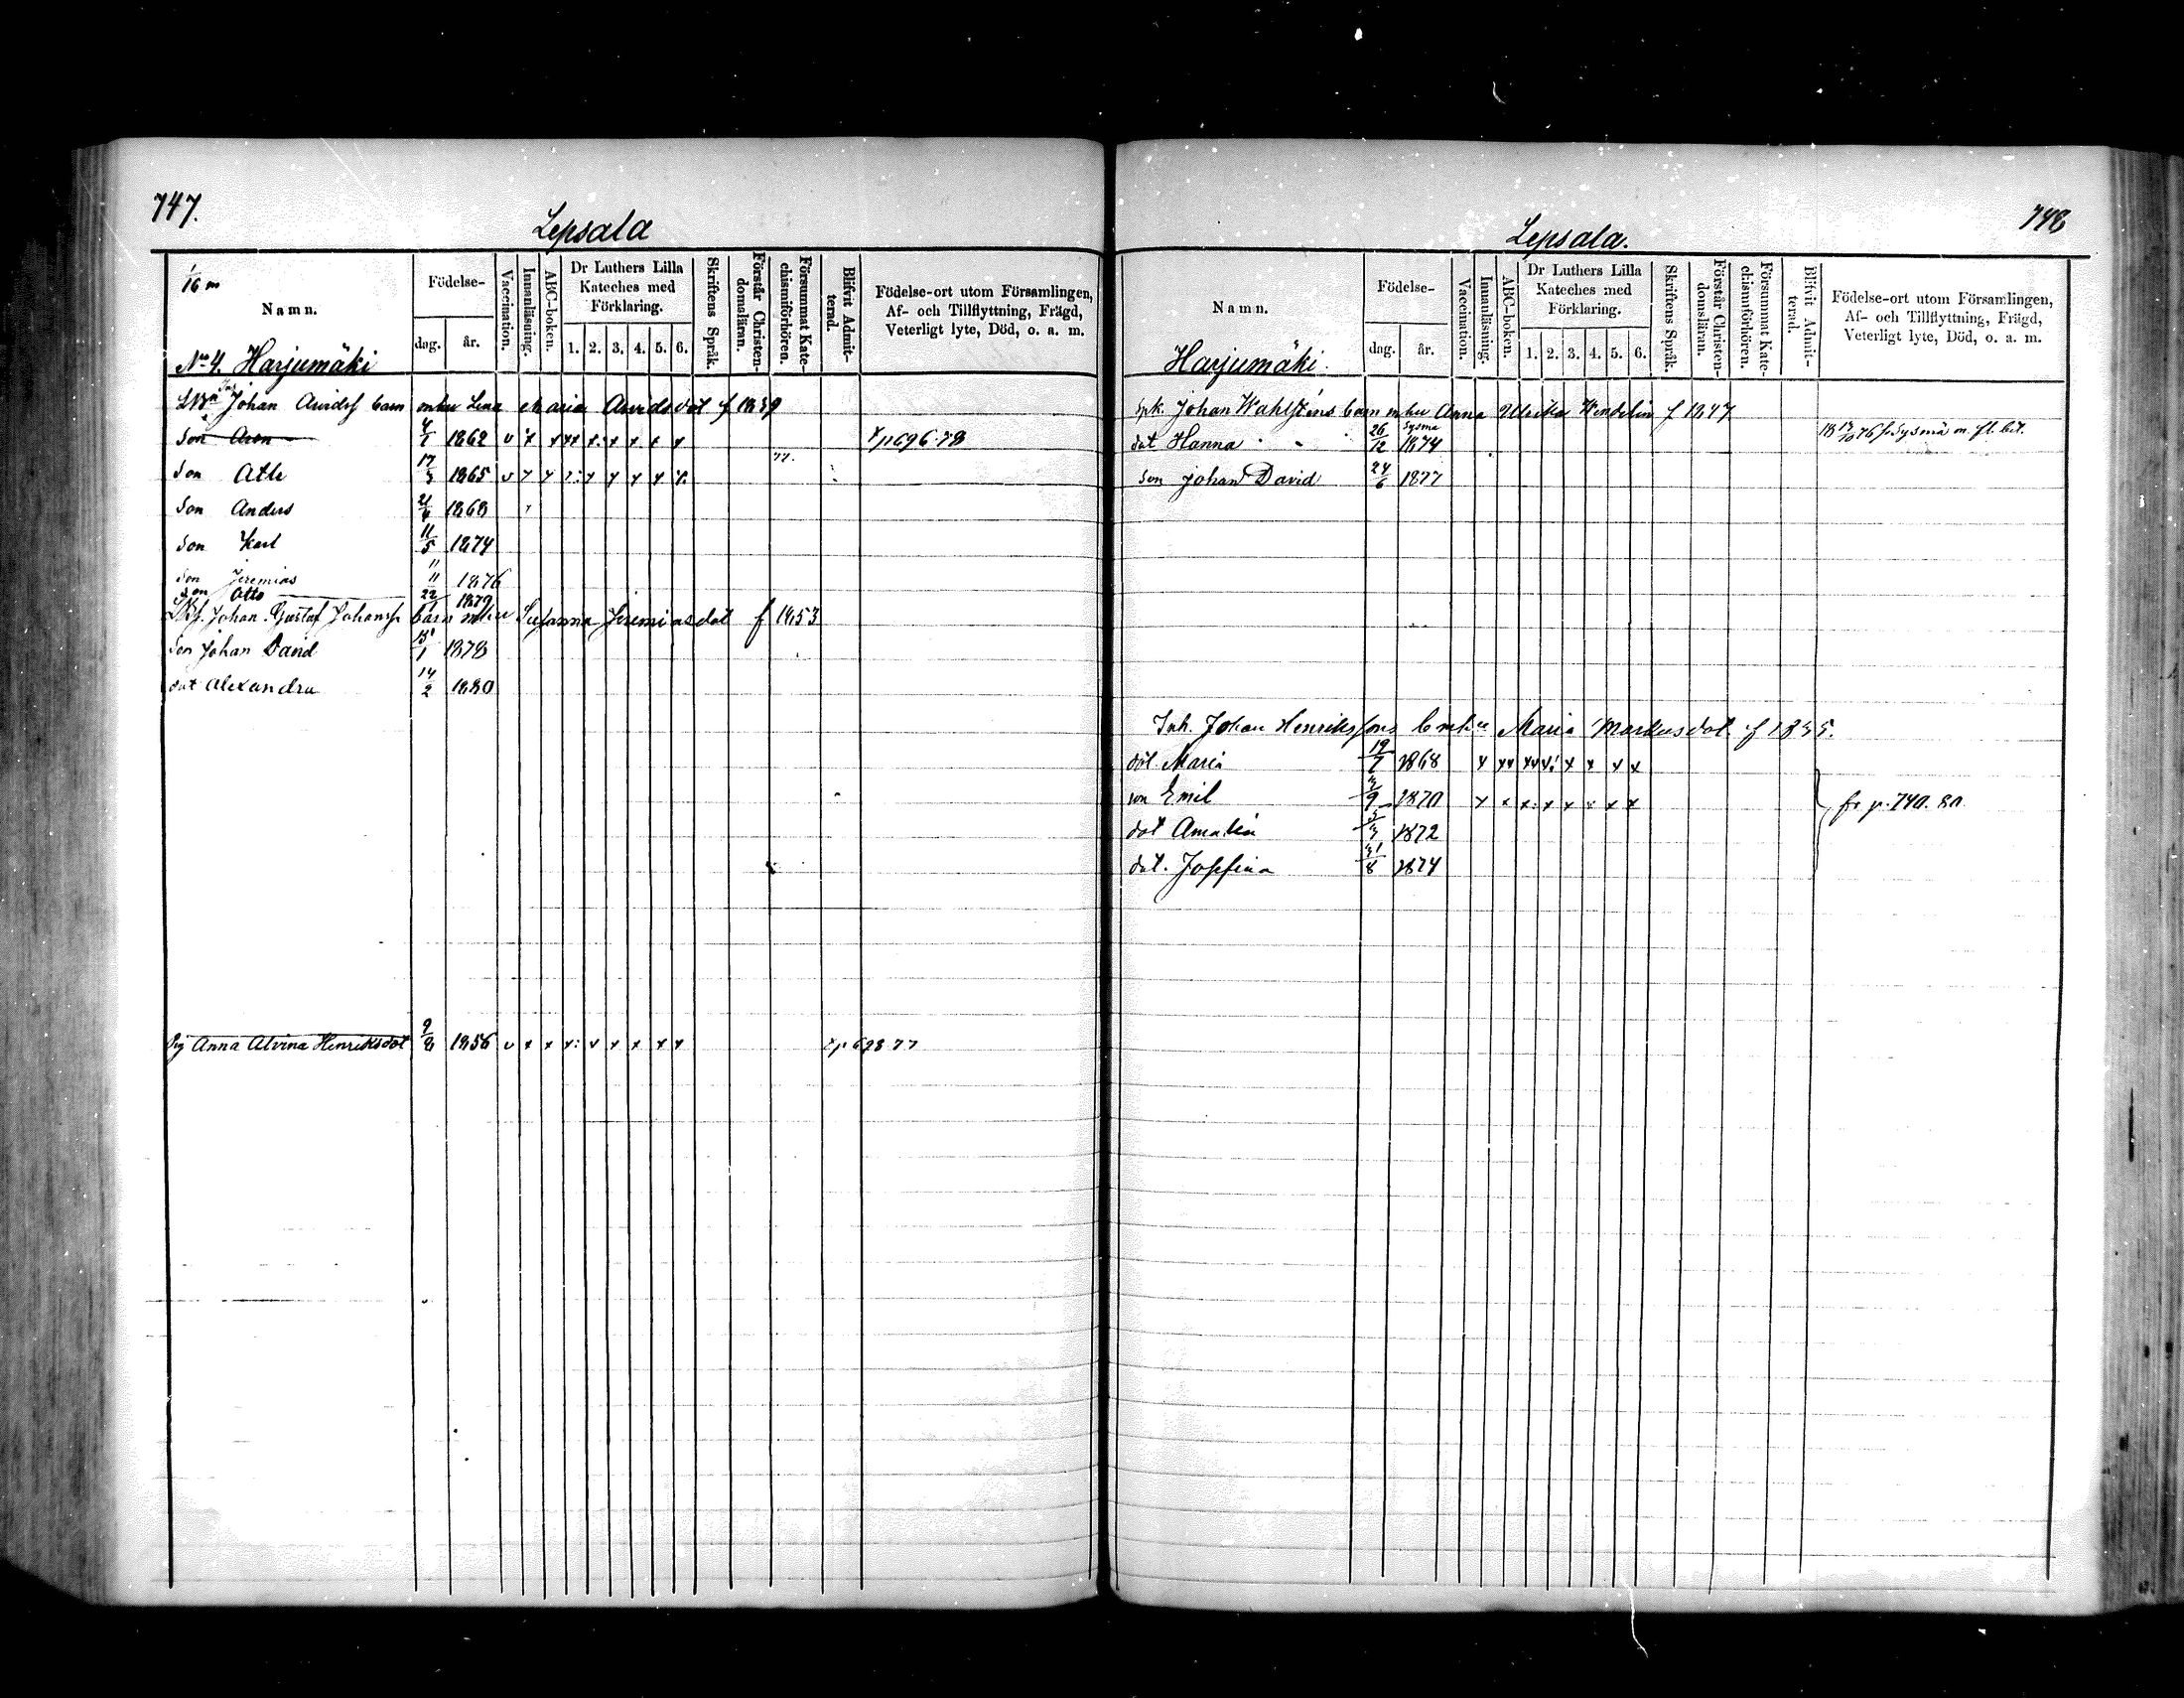 747.
Lepsala
1/16 m
Namn.
Födelse-
dag.
år.
Vaccination.
Innanläsning.
ABC-boken.
Dr Luthers Lilla
Kateches med
Förklaring.
1. 2. 3. 4. 5. 6.
Skriftens Språk.
Förstår Christen-
domsläran.
Försummat Kate-
chismiförhören.
Blifvit Admit-
terad.
Födelse-ort utom Församlingen,
Af- och Tillflyttning, Frägd,
Veterligt lyte, Död, o. a. m.
No 4. Harjumäki
Johan Arvidsf barn mhu Lena Maria Arvidsdot f 1839
Son Aron 4/1 1862 v x x xx x. x x x x p 696.78
Son Atle 17/3 1865 v x x x: x x x x x. 77.
Son Anders 1868
Son Karl 11/5 1874
Son Jeremias 11/11 1876
Son Otto 22/1 1879
Johan Gustaf Johansf barn mhu Susanna Jeremiasdot f 1853
Son Johan David 15/1 1878
dot Alexandra 14/2 1880
Pig Anna Alvina Henriksdot 9/8 1856 v x x x: v x x x x p 698 77
748
Lepsala.
Namn.
Födelse-
dag.
år.
Vaccination.
Innanläsning.
ABC-boken.
Dr Luthers Lilla
Kateches med
Förklaring.
1. 2. 3. 4. 5. 6.
Skriftens Språk.
Förstår Christen-
domsläran.
Försummat Kate-
chismiförhören.
Blifvit Admit-
terad.
Födelse-ort utom Församlingen,
Af- och Tillflyttning, Frägd,
Veterligt lyte, Död, o. a. m.
Harjumäki.
Spk. Johan Wahlsténs barn mhu Anna Ulrika Wendelin f 1847
dot Hanna 26/12 Sysmä 1874 76 fr Sysmä m. fl. bet.
Son Johan David 24/6 1877
Inh. Johan Henrikssons b mhu Maria Markusdot f 1835.
dot Maria 19/7 1868 x xx xx x! x x x x
son Emil 9 1870 x x x: x x x x x fr p. 740. 80.
dot Amalia 1872
dot. Josefina 31/8 1874